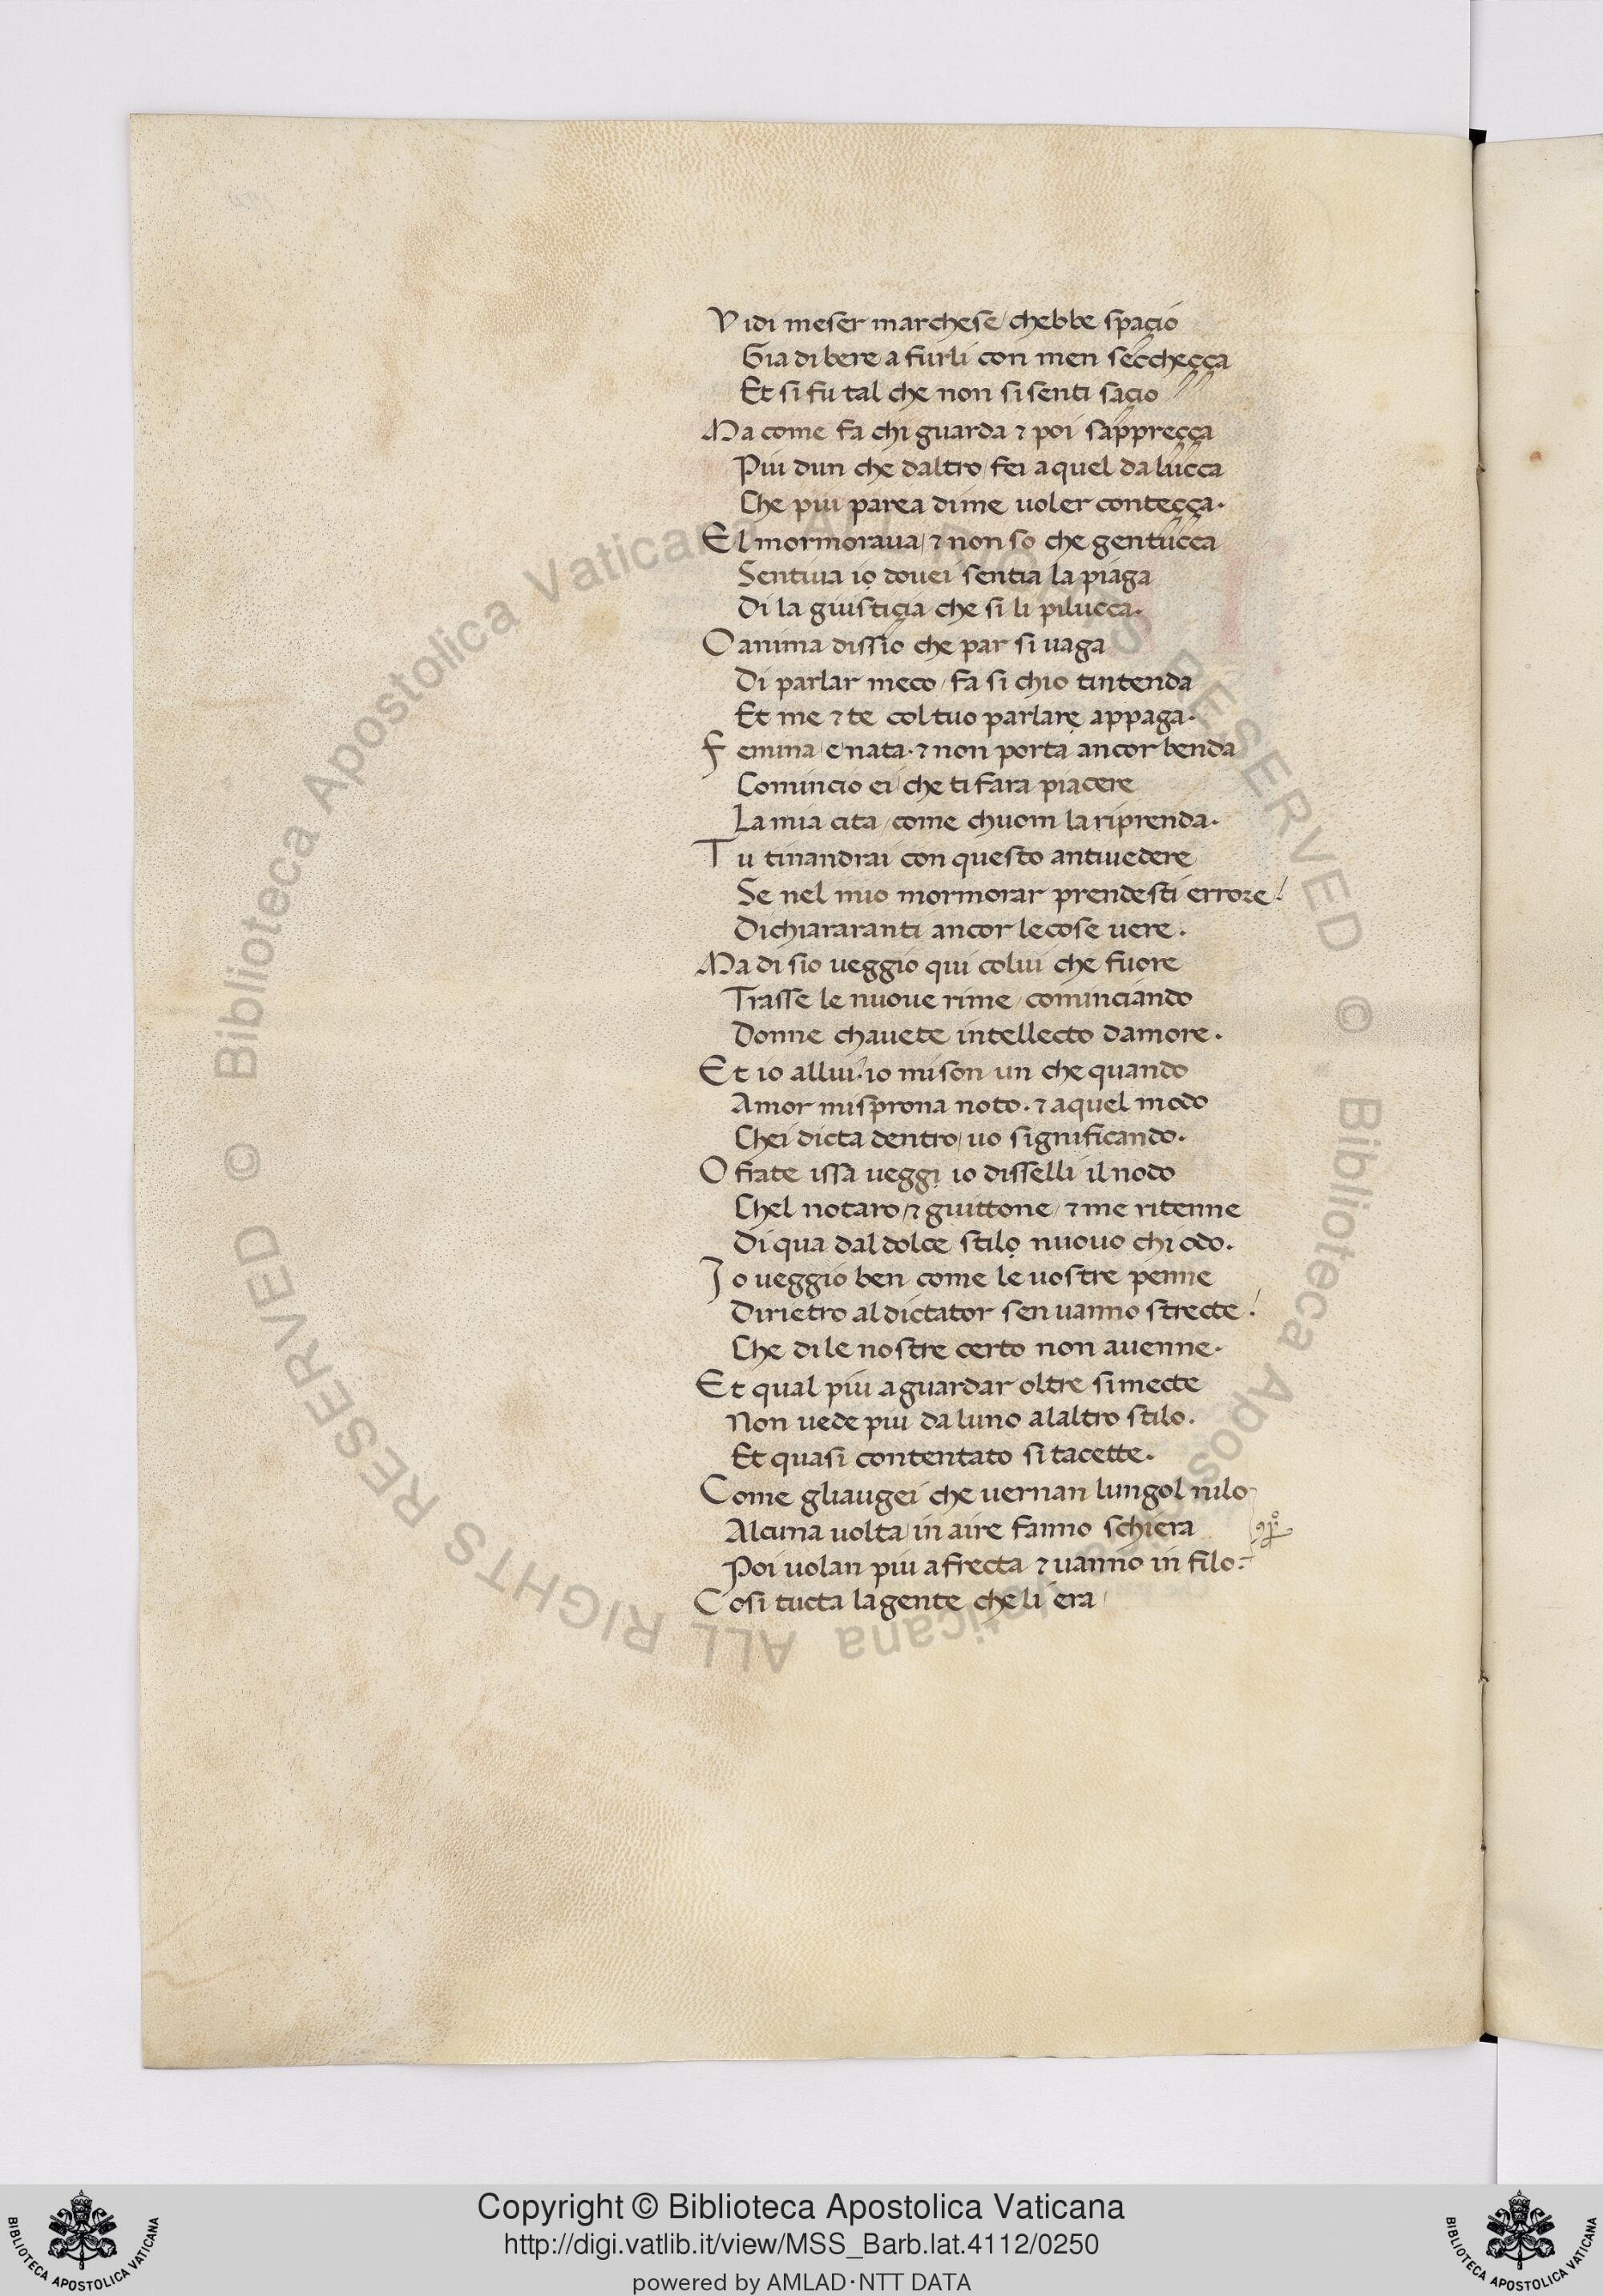 Vidi meser marchese / chebbe spaçio
Gia di bere a furli con men seccheçça
Et si fu tal che non si senti saçio
Ma come fa chi guarda ⁊ poi sappreçça
Piu dun che daltro / fei a quel da lucca
Che piu parea di me uoler conteçça.
El mormoraua / ⁊ non so che gentucca
Sentiua io douei sentia la piaga
Di la giustiçia che si li pilucca.
O anima dissio che par si uaga
Di parlar meco / fa si chio tintenda
Et me ⁊ te col tuo parlare appaga.
Femina / e / nata. ⁊ non porta ancor benda
Comincio ei / che ti fara piacere
La mia cita / come chuom la riprenda.
Tu tinandrai con questo antiuedere
Se nel mio mormorar prendesti errore!
Dichiararanti ancor le cose uere.
Ma di sio veggio qui colui che fuore
Trasse le nuoue rime / cominciando
Donne chauete intellecto damore.
Et io allui. io mi son un che quando
Amor mi sprona noto. ⁊ a quel modo
Chei dicta dentro / uo significando.
O frate issa ueggi io disselli il nodo
Chel notaro / ⁊ guittone / ⁊ me ritenne
Di qua dal dolce stilo nuouo chi odo.
Io veggio ben come le uostre penne
Dirietro al dictator sen uanno strecte!
Che di le nostre certo non auenne.
Et qual piu a guardar oltre si mecte
Non uede piu da luno alaltro stilo.
Et quasi contentato si tacette.
Come gliaugei che uernan lungol nilo
Alcuna uolta / in aire fanno schiera
Poi uolan piu a frecta ⁊ uanno in filo:
Cosi tucta la gente che li era /
Copyright © Biblioteca Apostolica Vaticana
http://digi.vatlib.it/view/MSS_Barb.lat.4112/0250
powered by AMLAD·NTT DATA
BIBLIOTECA APOSTOLICA VATICANA
BIBLIOTECA APOSTOLICA VATICANA
© Biblioteca Apostolica Vaticana ALL RIGHTS RESERVED
© Biblioteca Apostolica Vaticana ALL RIGHTS RESERVED